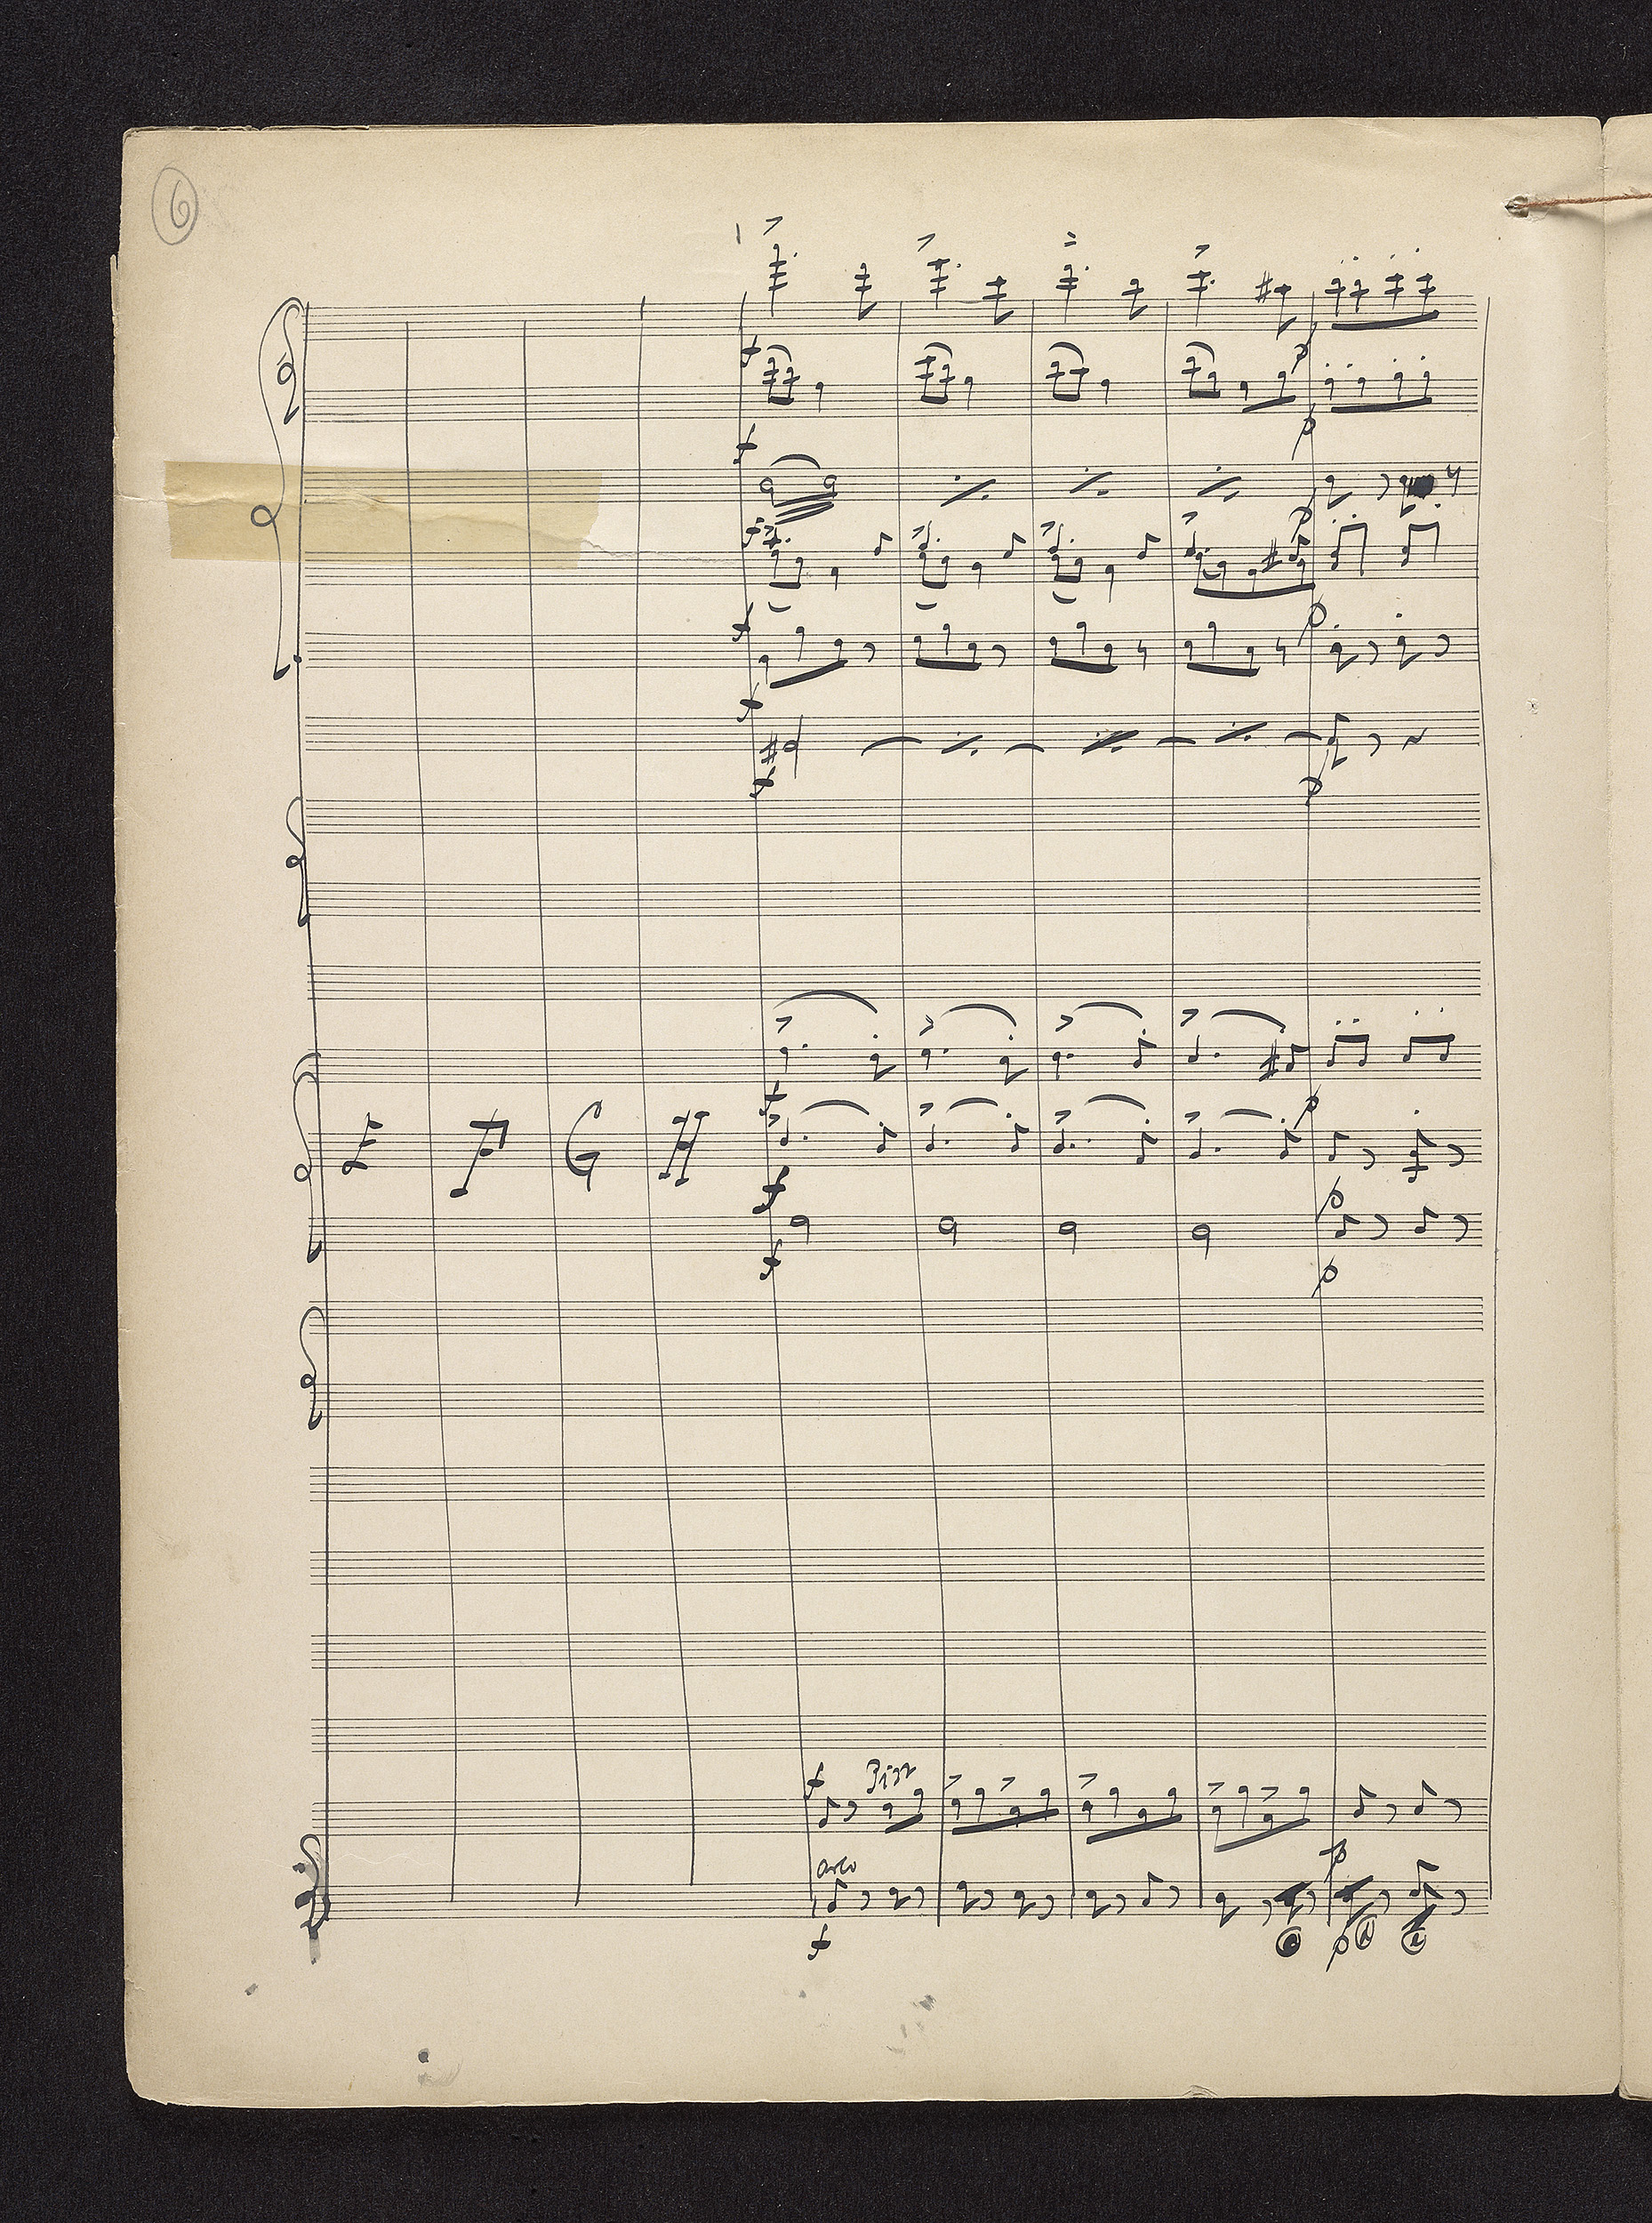 6
f
p
f
p
f
p
f
p
f
f
p
f
p
E F G H
f
p
f
p
f Pizz
arco
p
f
p